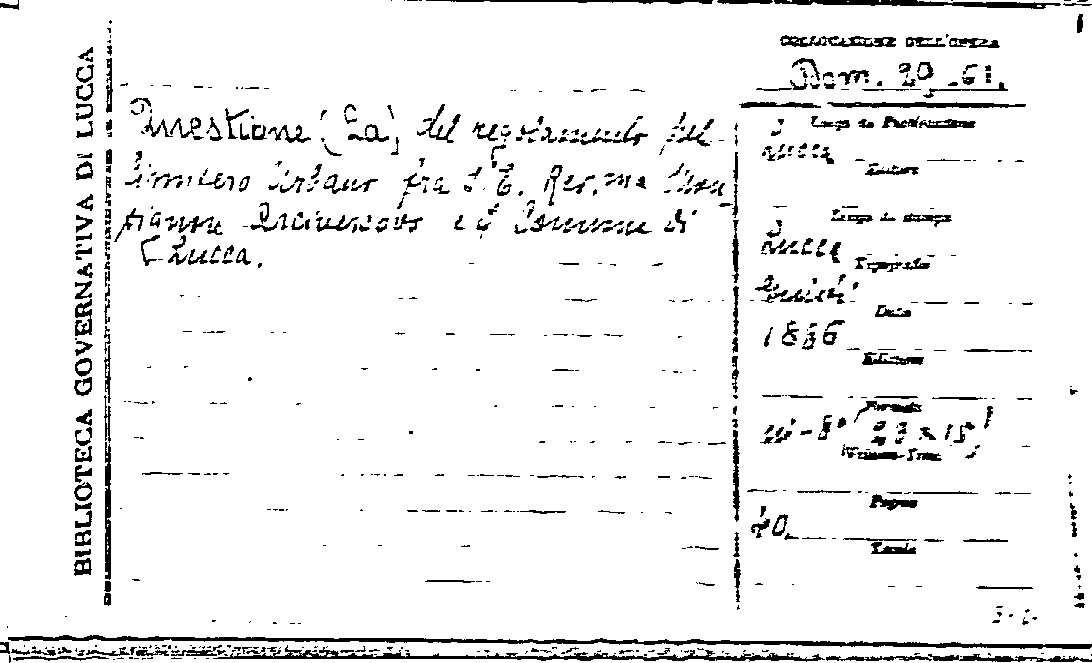 BIBLIOTECA GOVERNATIVA DI LUCCA
COLLOCAZIONE DELL'OPERA
Bom. 29.61.
Questione (La) del regolamento pel
Cimitero Urbano fra S. E. Rev.ma Mon-
signore Arcivescovo e il Comune di
Lucca.
Luogo da Pubblicazione
Lucca
Editore
Luogo da stampa
Lucca
Tipografia
Guidi
Data
1886
Edizione
Formato
in-8° (23 x 15)
Volume-Tomo
Pagine
40.
Tavole